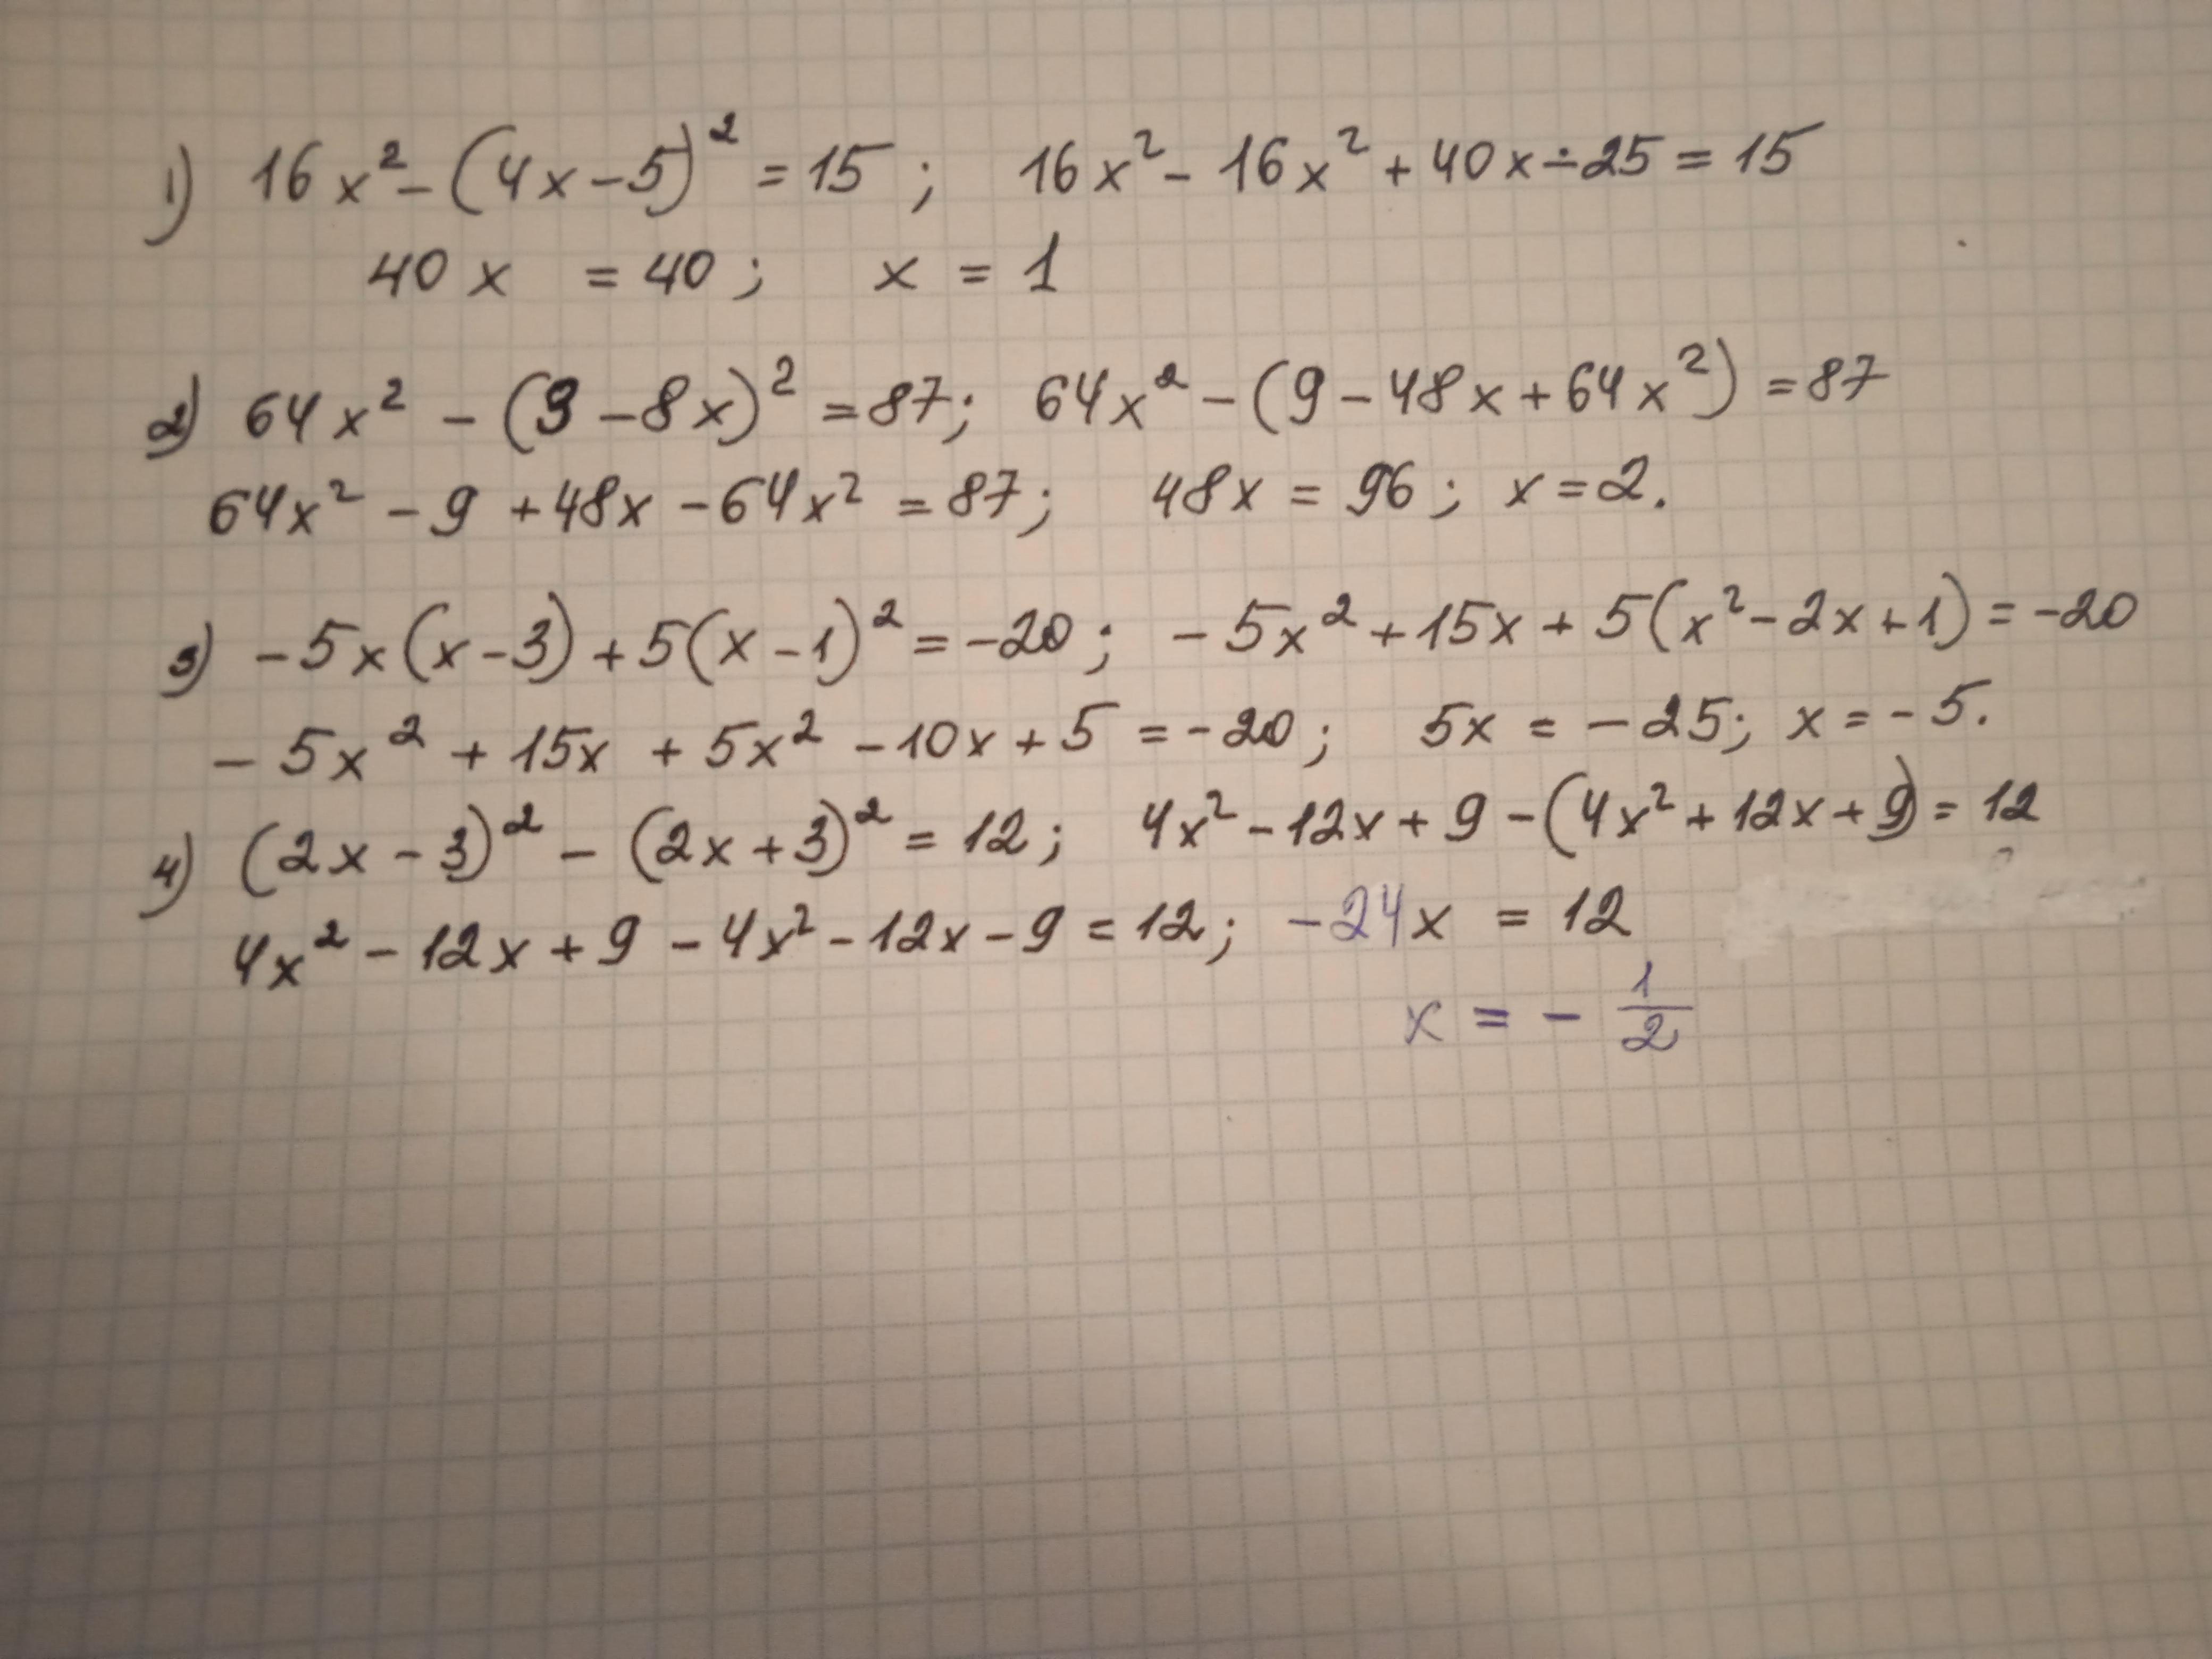 1) 16x² - (4x - 5)² = 15 ; 16x² - 16x² + 40x - 25 = 15
40x = 40 ; x = 1
2) 64x² - (3 - 8x)² = 87 ; 64x² - (9 - 48x + 64x²) = 87
64x² - 9 + 48x - 64x² = 87 ; 48x = 96 ; x = 2.
3) - 5x(x - 3) + 5(x - 1)² = -20 ; - 5x² + 15x + 5(x² - 2x + 1) = -20
- 5x² + 15x + 5x² - 10x + 5 = -20 ; 5x = - 25 ; x = - 5.
4) (2x - 3)² - (2x + 3)² = 12 ; 4x² - 12x + 9 - (4x² + 12x + 9) = 12
4x² - 12x + 9 - 4x² - 12x - 9 = 12 ; -24x = 12
x = - 1/2